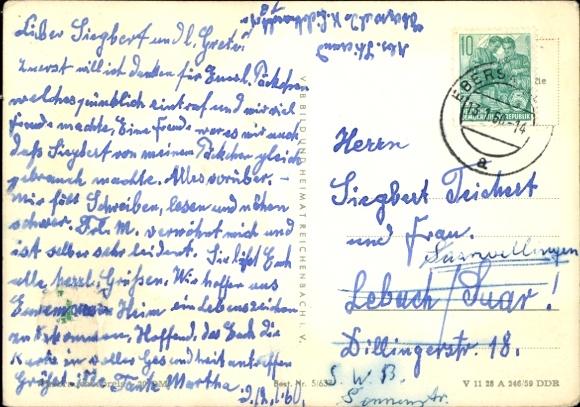 Lieber Siegbert und l. Gretel
Zuerst will ich danken für Euer l. Päckchen,
welches pünktlich eintraf und mir viel
Freude machte. Eine Freude war es mir auch
daß Siegbert von meinen Päckchen gleich
gebrauch machte. Alles vorüber. –
Mir fällt Schreiben, lesen und nähen
schwer. Frl. M. verwöhnt mich und
ist selber sehr leidend. Sie läßt Euch
alle herzl. Grüßen. Wir hoffen aus
Eurem Heim ein Lebenszeichen
zu bekommen. Hoffend, das Euch die
Karte in voller Gesundheit antreffen
Grüßt alle Tante Martha.
Abs.
VEB BILD UND HEIMAT REICHENBACH I. V.
10
DEUTSCHE DEMOKRATISCHE REPUBLIK
EBERS
14
a
Herrn
Siegbert Teichert
und Frau.
Saarwellingen
Lebach/Saar!
Dillingerstr. 18.
S. W. B.
Sonnenstr.
Best. Nr. 5/637
V 11 28 A 246/59 DDR